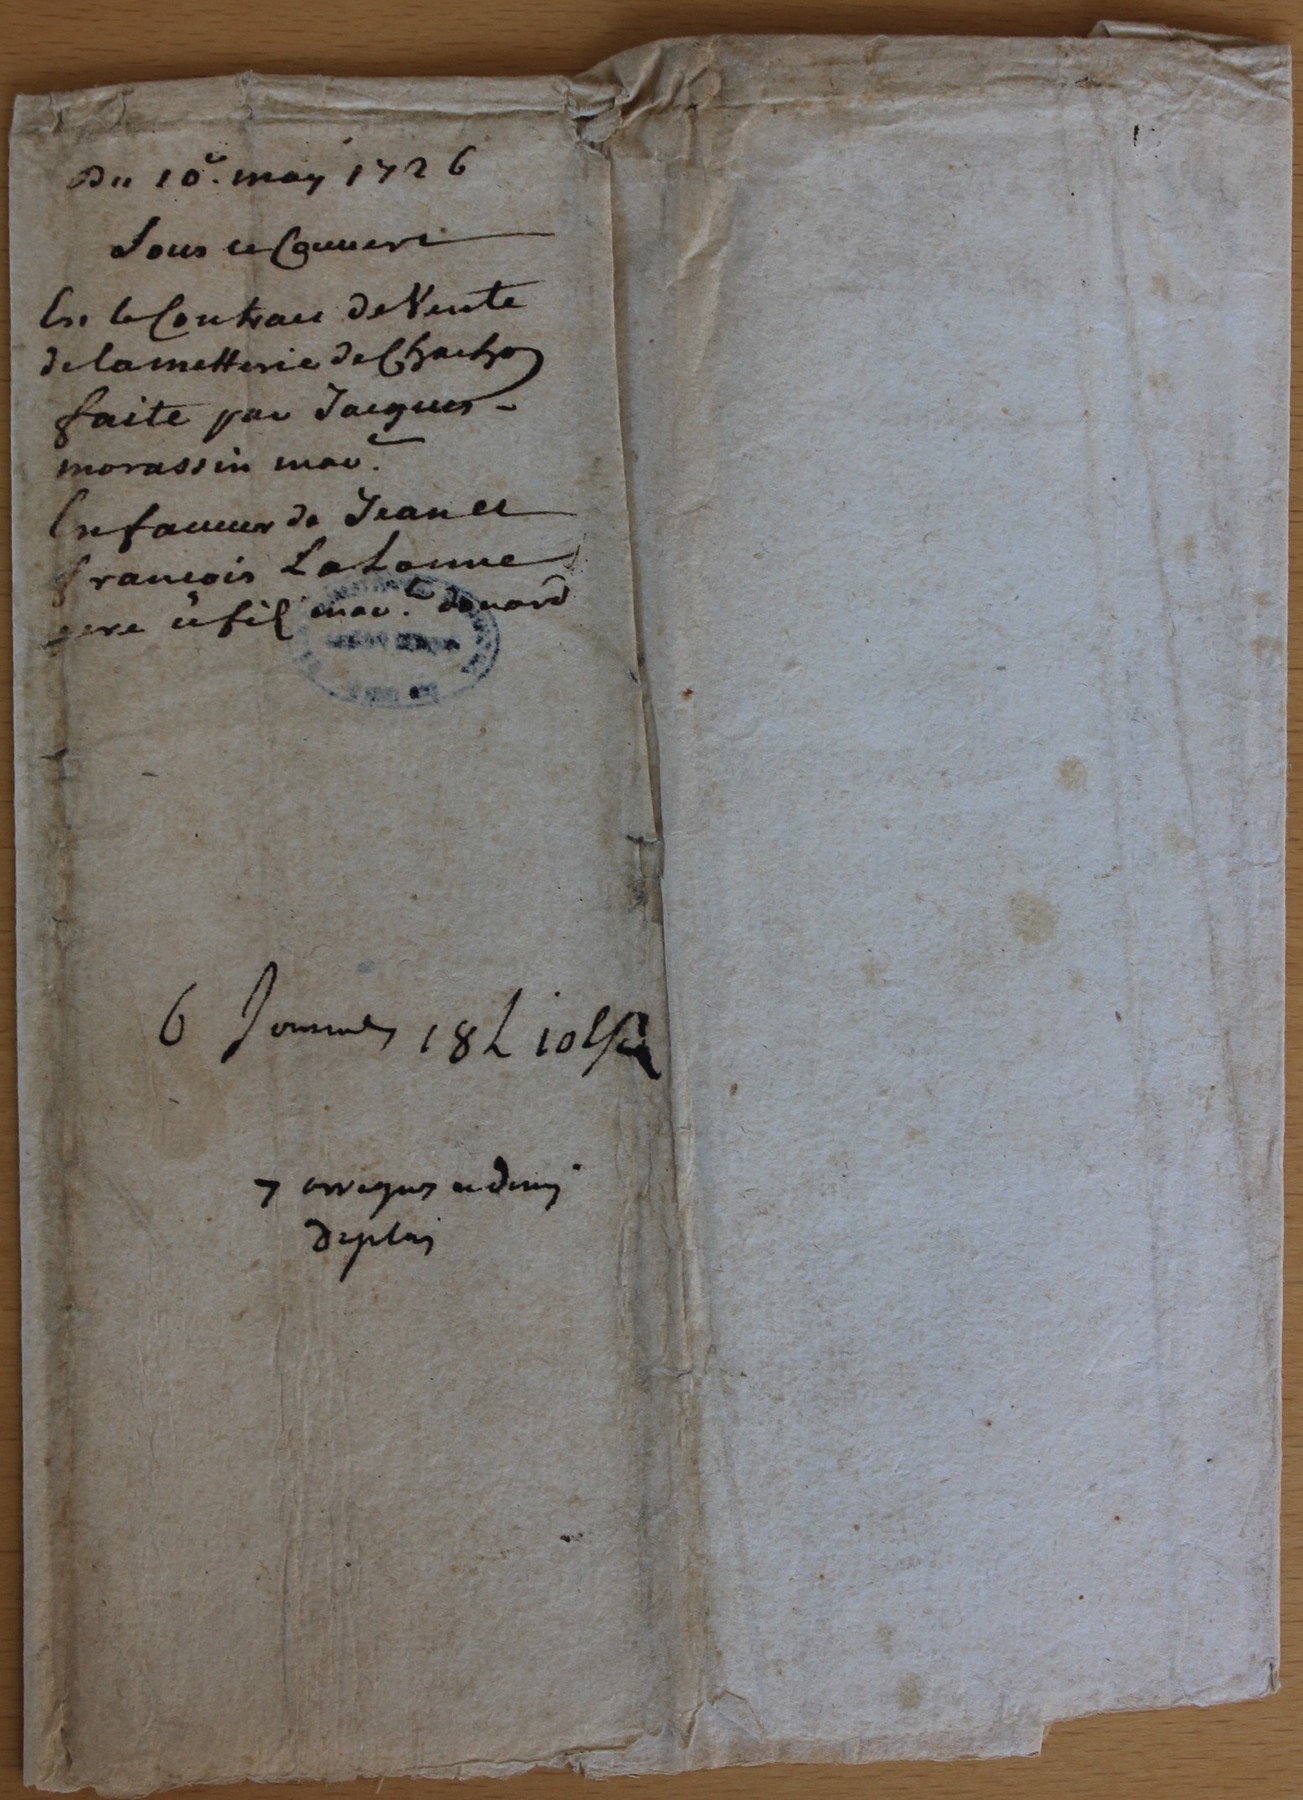 Du 10e. may 1726
Sous ce Couvert
Est le Contract de Vente
de la metterie de Chacho
faite par Jacques
morassin mar.
En faveur de Jean et
françois Lalanne
pere et fil mar.
6 Journaux 18 L 10
7 arregues et demy
de plai